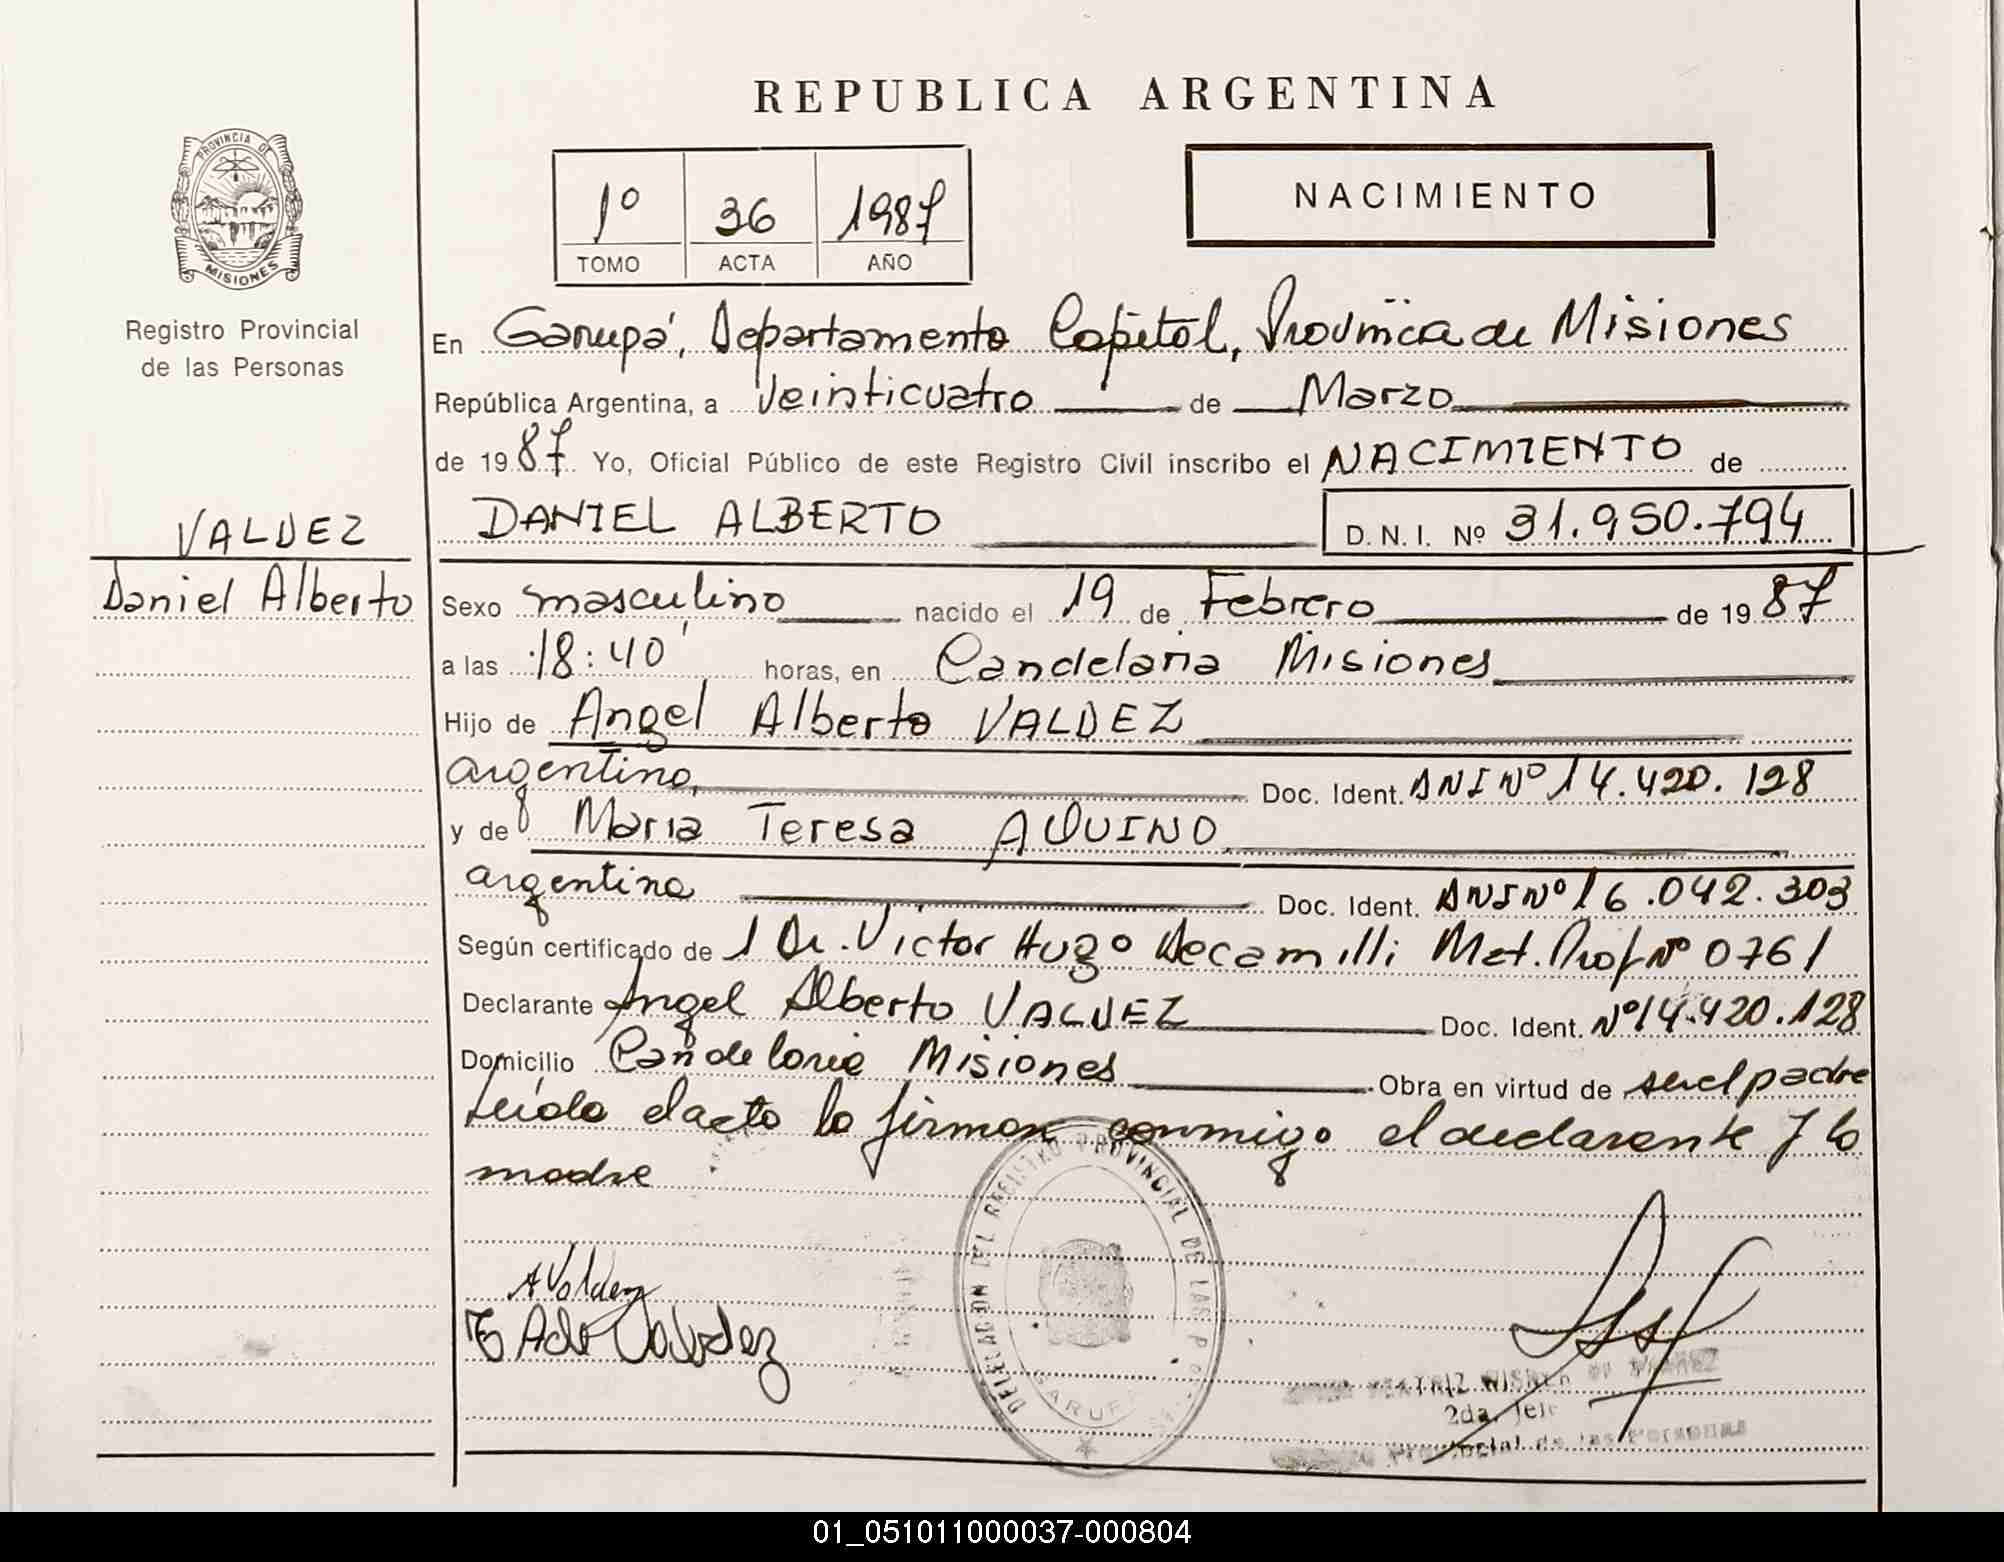 REPUBLICA ARGENTINA
PROVINCIA DE
MISIONES
Registro Provincial
de las Personas
1º 36 1987
TOMO ACTA AÑO
NACIMIENTO
En Garupá, Departamento Capital, Provincia de Misiones
República Argentina, a Veinticuatro de Marzo
de 1987 Yo, Oficial Público de este Registro Civil inscribo el NACIMIENTO de
VALDEZ
Daniel Alberto
DANIEL ALBERTO D. N. I. Nº 31.950.794
Sexo masculino nacido el 19 de Febrero de 1987
a las 18:40' horas, en Candelaria Misiones
Hijo de Angel Alberto VALDEZ
argentino, Doc. Ident. DNI Nº 14.420.128
y de Maria Teresa AQUINO
argentina Doc. Ident. DNI Nº 16.042.303
Según certificado de l Dr. Victor Hugo Decamilli Mat. Prof Nº 0761
Declarante Angel Alberto VALDEZ Doc. Ident. Nº 14.420.128
Domicilio Candelaria Misiones Obra en virtud de ser el padre
Leída el acta la firman conmigo el declarante y la
madre
A Valdez
DELEGACION DEL REGISTRO PROVINCIAL DE LAS
GARUPA
2da. Jefe
Provincial de las Personas
01_051011000037-000804